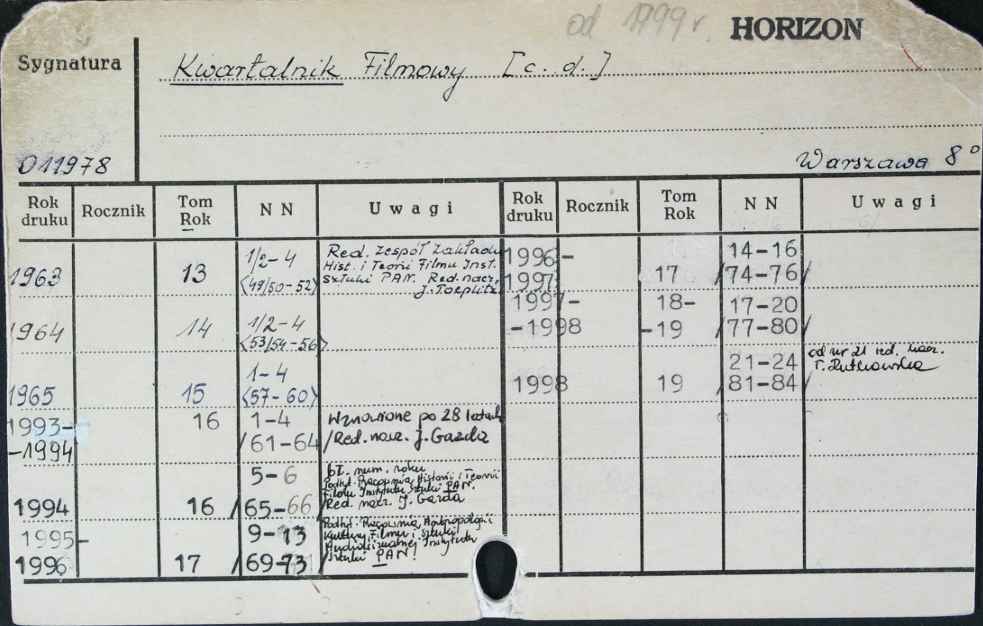 od 1999 r.
HORIZON
Sygnatura
Kwartalnik Filmowy [c. d.]
011978
Warszawa 8°
Rok druku Rocznik Tom Rok N N Uwagi Rok druku Rocznik Tom Rok N N Uwagi
1963 13 1/2-4 <49/50-52>
Red. Zespół Zakładu
Hist. i Teorii Filmu Inst.
Sztuki PAN. Red. nacz.
J. Toeplitz
1964 14 1/2-4 <53/54-56>
1965 15 1-4 <57-60>
1993-
-1994 16 1-4 /61-64/
Wznowione po 28 latach
Red. nacz. J. Gazda
1994 16 5-6 /65-66
bł. num. roku
Podtyt. Pracownia Historii i Teorii
Filmu Instytutu Sztuki PAN.
Red. nacz. J. Gazda
1995-
1996 17 9-13 /69-73/
Podtyt. Pracownia Antropologii
Kultury Filmu i Sztuki
Audiowizualnej Instytutu
Sztuki PAN.
1996-
1997 17 14-16 /74-76/
1997-
-1998 18-
-19 17-20 /77-80/
1998 19 21-24 /81-84/
od nr 21 red. nacz.
T. Rutkowska